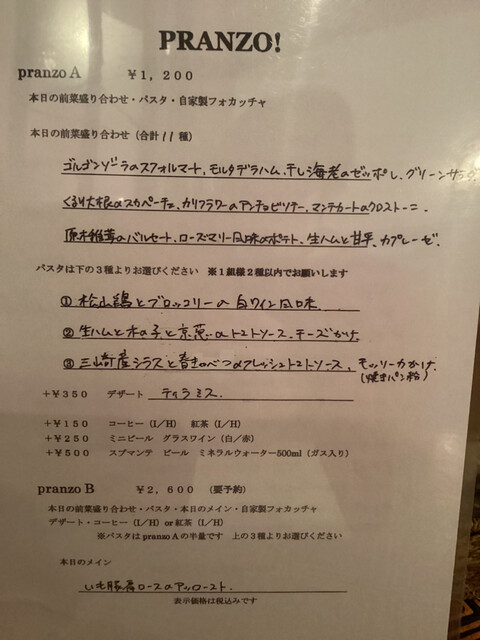 PRANZO!
pranzo A ￥1,200
本日の前菜盛り合わせ・パスタ・自家製フォカッチャ
本日の前菜盛り合わせ（合計11種）
ゴルゴンゾーラのスフォルマート、モルタデラハム、干し海老のゼッポレ、グリーンサラダ
大根のスカペーチェ、カリフラワーのアンチョビソテー、マンテカートのクロストーニ、
原木椎茸のバルサート、ローズマリー風味のポテト、生ハムと甘平、カプレーゼ、
パスタは下の3種よりお選びください ※1組様2種以内でお願いします
① 松山鶏とブロッコリーの白ワイン風味
② 生ハムと木の子と京葱のトマトソース、チーズがけ
③ 三崎産シラスと春キャベツのフレッシュトマトソース、モッリーカがけ
(焼きパン粉)
+￥350 デザート ティラミス
+￥150 コーヒー（I/H） 紅茶（I/H）
+￥250 ミニビール グラスワイン（白/赤）
+￥500 スプマンテ ビール ミネラルウォーター500ml（ガス入り）
pranzo B ￥2,600 （要予約）
本日の前菜盛り合わせ・パスタ・本日のメイン・自家製フォカッチャ
デザート・コーヒー（I/H）or 紅茶（I/H）
※パスタは pranzo A の半量です 上の3種よりお選びください
本日のメイン
いも豚肩ロースのアッロースト、
表示価格は税込みです